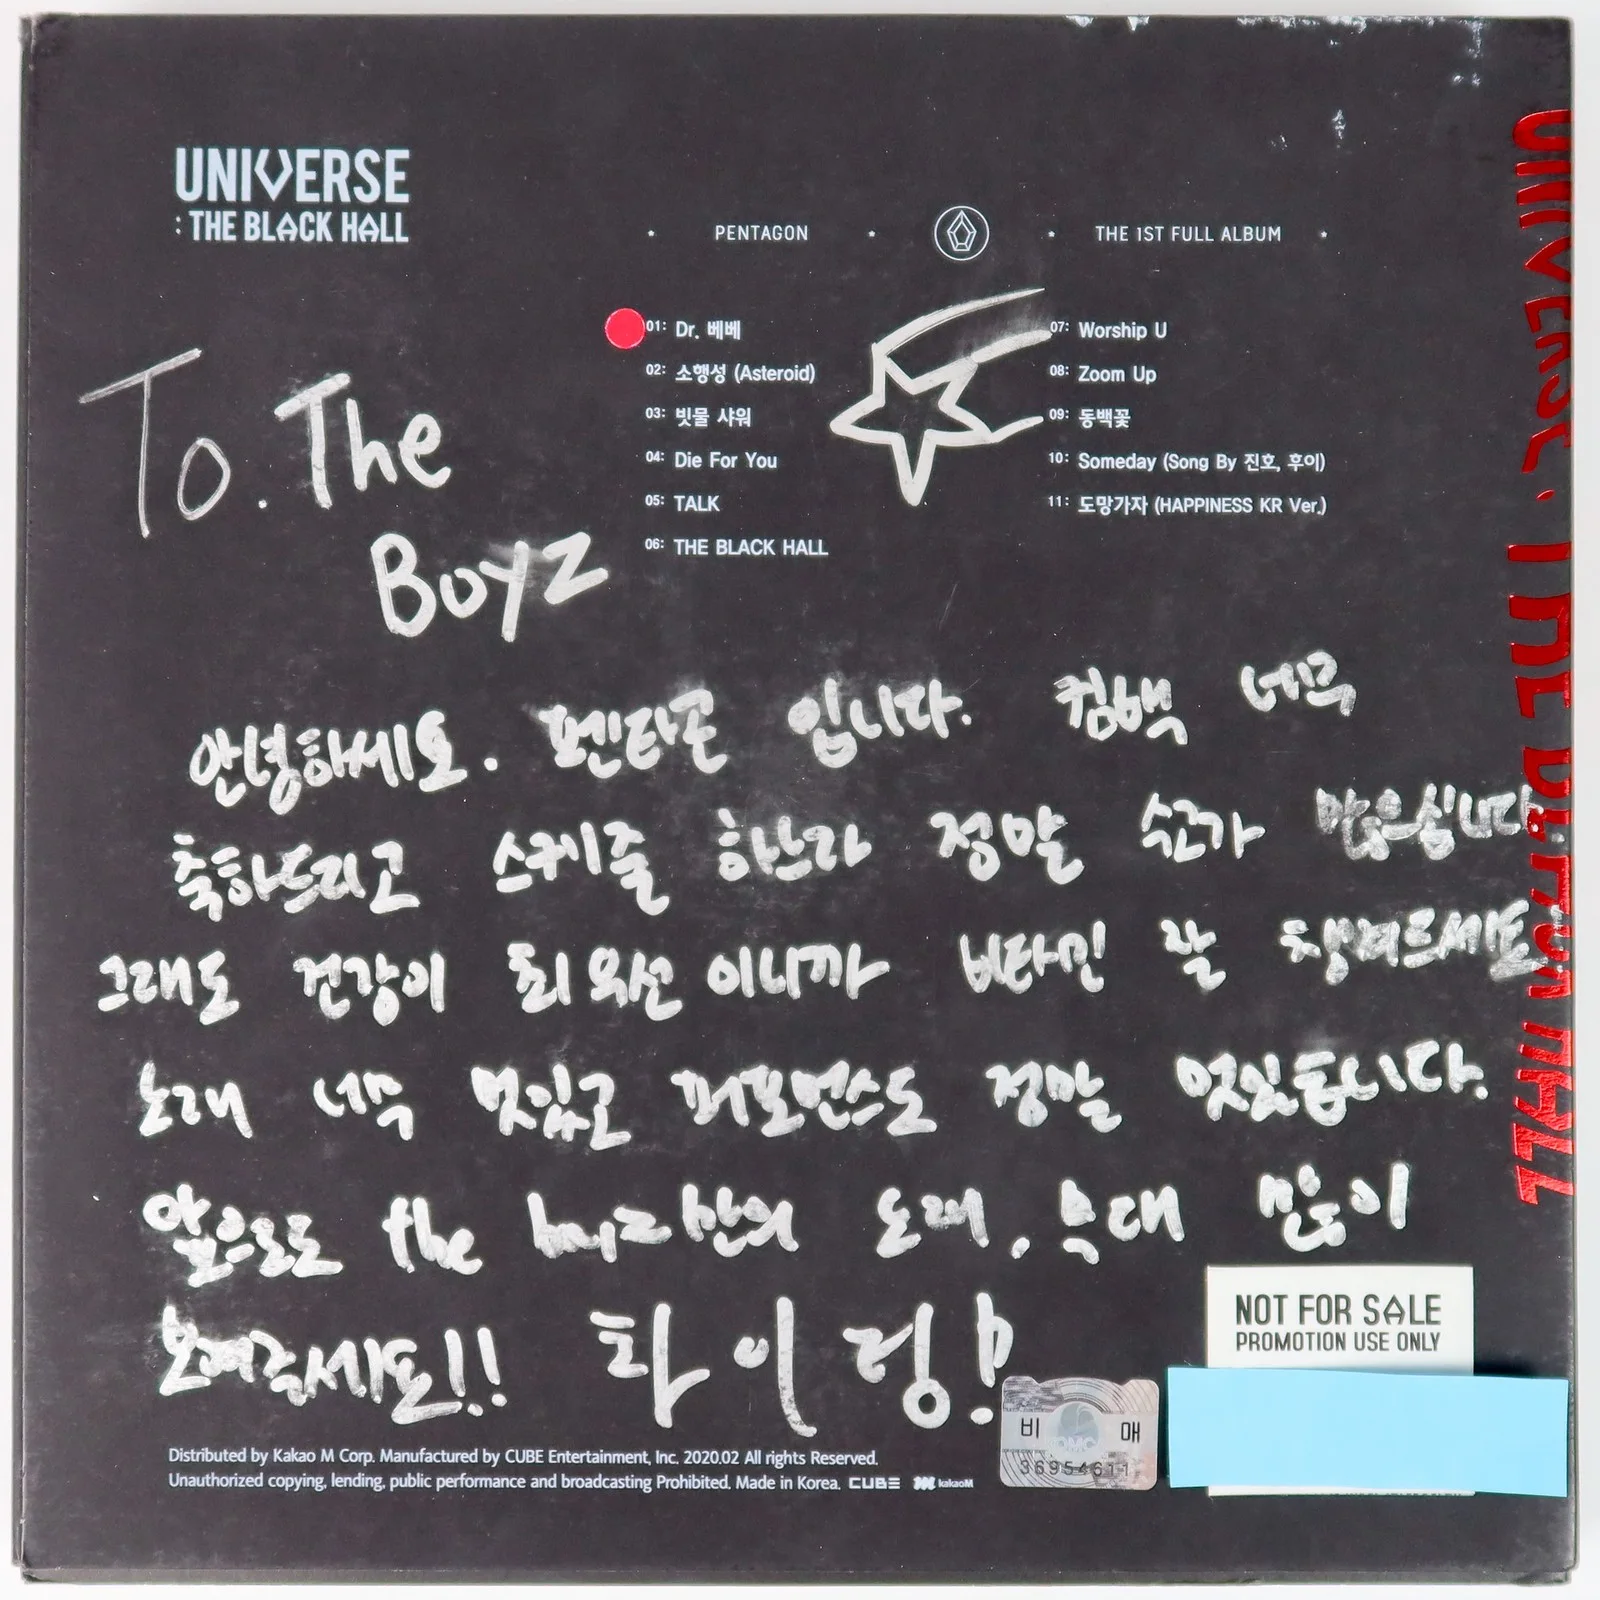 UNIVERSE
: THE BLACK HALL
PENTAGON
THE 1ST FULL ALBUM
01: Dr. 베베
02: 소행성 (Asteroid)
03: 빗물 샤워
04: Die For You
05: TALK
06: THE BLACK HALL
07: Worship U
08: Zoom Up
09: 동백꽃
10: Someday (Song By 진호, 후이)
11: 도망가자 (HAPPINESS KR Ver.)
To. The
Boyz
안녕하세요. 펜타곤 입니다. 컴백 너무
축하드리고 스케줄 하느라 정말 수고가 많으십니다.
그래도 건강이 최우선 이니까 비타민 잘
노래 너무 멋있고 퍼포먼스도 정말 멋있습니다.
앞으로도 the boyz 만의 노래, 무대 많이
보여주세요!! 화이링!
Distributed by Kakao M Corp. Manufactured by CUBE Entertainment, Inc. 2020.02 All rights Reserved.
Unauthorized copying, lending, public performance and broadcasting Prohibited. Made in Korea. CUBE kakaoM
비 매
NOT FOR SALE
PROMOTION USE ONLY
UNIVERSE : THE BLACK HALL